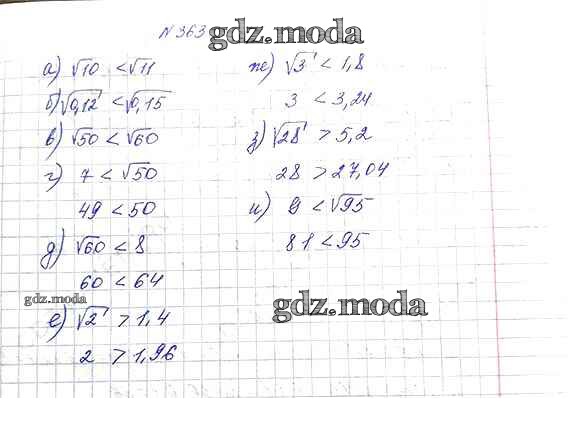 № 363 gdz.moda
а) √10 < √11
б) √0,12 < √0,15
в) √50 < √60
г) 7 < √50
49 < 50
д) √60 < 8
60 < 64
gdz.moda
е) √2 > 1,4
2 > 1,96
ж) √3 < 1,8
3 < 3,24
з) √28 > 5,2
28 > 27,04
и) 9 < √95
81 < 95
gdz.moda